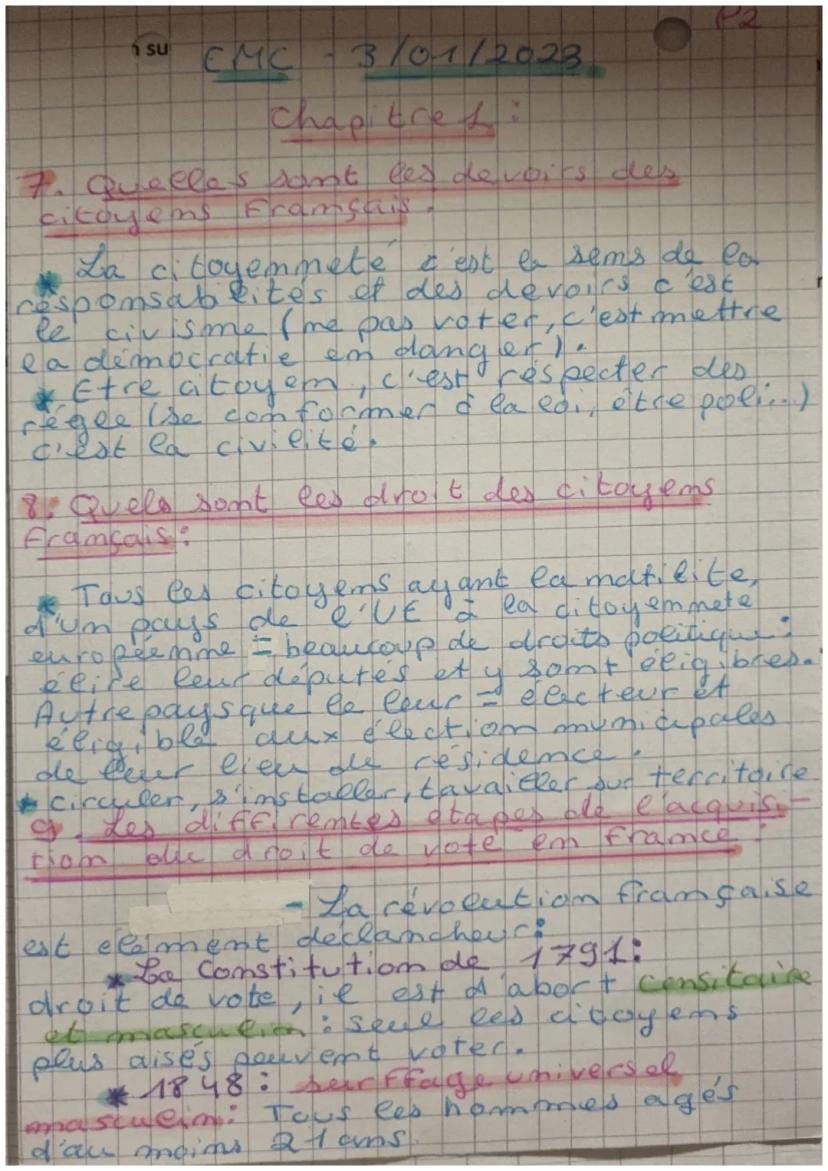 su
P2
EMC - 3/01/2023
Chapitre 1 :
7. Quelles sont les devoirs des
citoyens Français.
* La citoyenneté c'est le sens de la
résponsabilités et des devoirs c'est
le civisme (ne pas voter, c'est mettre
la démocratie en danger).
* Etre citoyen, c'est réspecter des
régle (se conformer à la loi, être poli...)
c'est la civilité.
8. Quels sont les droit des citoyens
Français :
* Tous les citoyens ayant la natilite,
d'un pays de l'UE à la citoyenneté
européenne = beaucoup de droits politique :
élire leur députés et y sont éligibres.
Autre pays que le leur = électeur et
éligible aux élection municipales
de leur lieu de résidence.
* circuler, s'installer, tavailler sur territoire
9. Les differentes étapes de l'acquisi-
tion du droit de vote en France :
- La révolution française
est elément déclancheur :
* La Constitution de 1791 :
droit de vote, il est d'abort censitaire
et masculin : seul les citoyens
plus aisés peuvent voter.
* 1848 : surffage universel
masculin : Tous les hommes agés
d'au moins 21 ans.